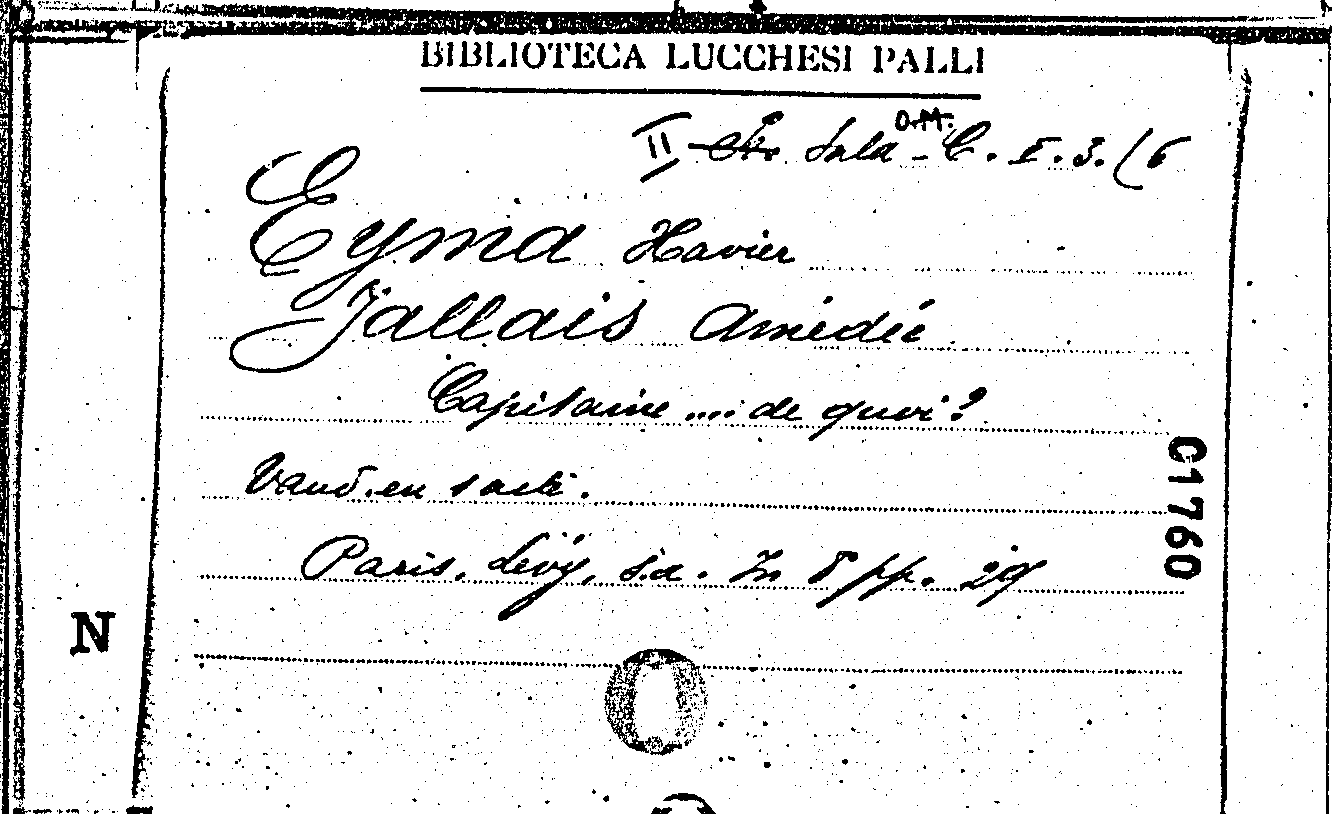 BIBLIOTECA LUCCHESI PALLI
O.M.
II Sala - C. I. 3. (6
Eyma Xavier
Jallais Amédée
Capitaine .... de quoi?
Vaud. en 1 acte.
Paris, Lévy, s.a. In 8 pp. 29
01760
N